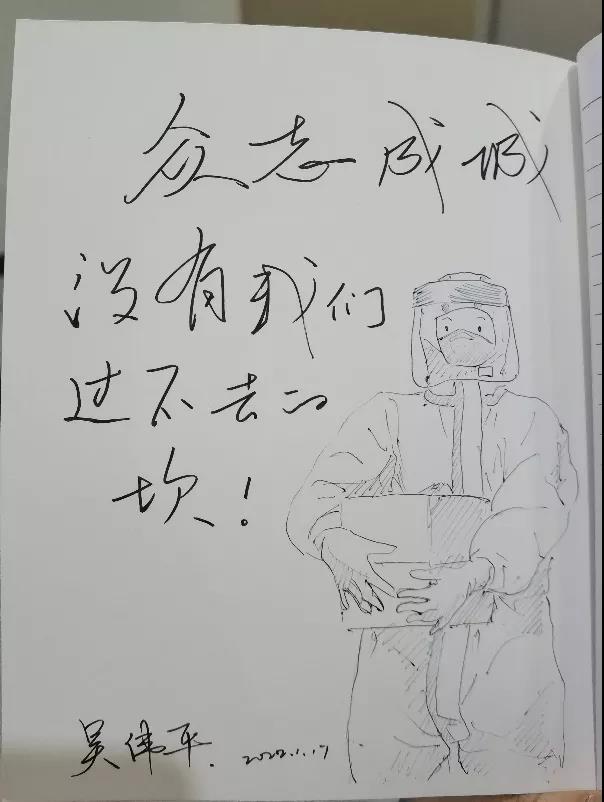 众志成城
没有我们
过不去的
坎！
吴伟平. 2022.1.17